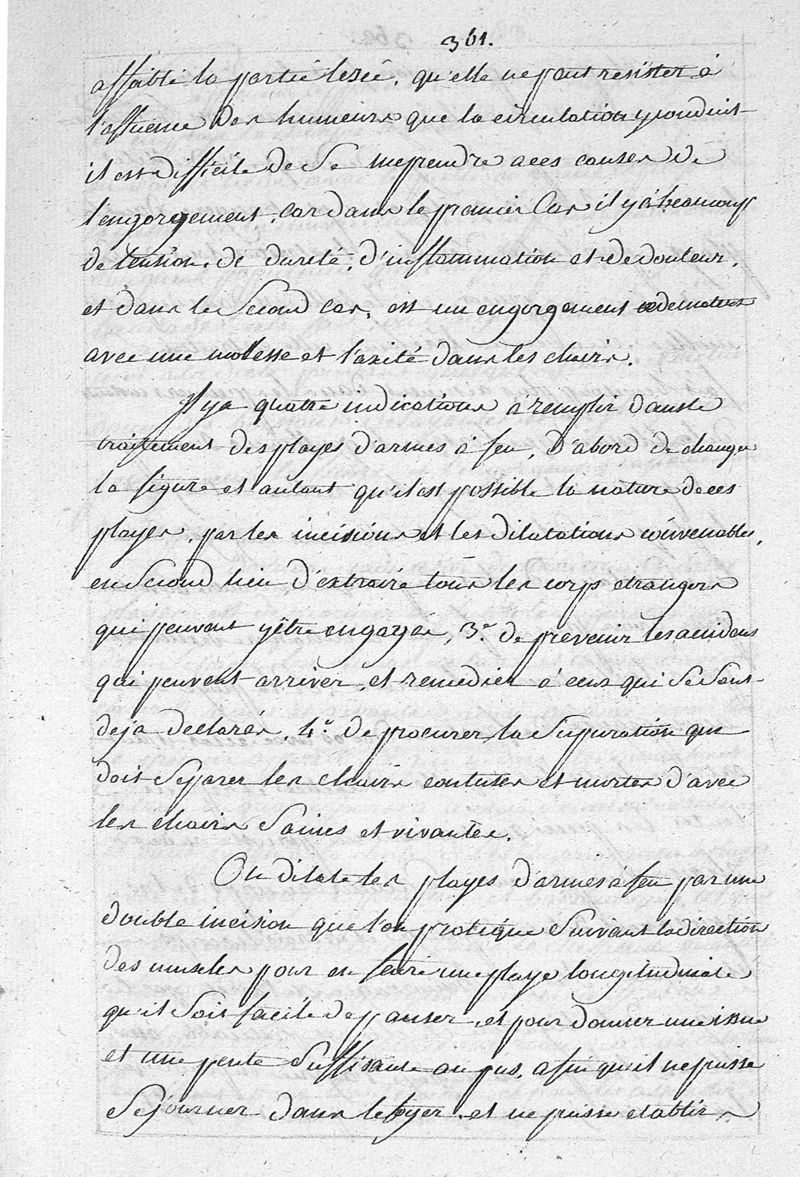 361.
affaible la partie lesée, qu'elle ne peut resister à
l'affluence des humeurs que la circulation y conduit
il est difficile de se meprendre a ces causes de
l'engorgement, car dans le premier cas il y a beaucoup
de tension, de dureté, d'inflammation et de douleur,
et dans le second cas, est un engorgement œdemateux
avec une molesse et laxité dans les chairs.
Il y a quatre indications à remplir dans le
traitement des playes d'armes à feu, d'abord de changer
la figure et autant qu'il est possible la nature de ces
playes, par les incisions et les dilatations convenables,
en second lieu d'extraire tous les corps etrangers
qui peuvent y être engagés, 3.° de prevenir les accidens
qui peuvent arriver, et remedier à ceux qui se sont
deja declarés, 4.° de procurer la supuration qui
doit separer les chairs contuses et mortes d'avec
les chairs saines et vivantes.
On dilate les playes d'armes à feu par une
double incision que l'on pratique suivant la direction
des muscles pour en faire une playe longitudinale
qu'il soit facile de panser, et pour donner une issue
et une pente suffisante au pus, afin qu'il ne puisse
sejourner dans le foyer, et ne puisse etablir